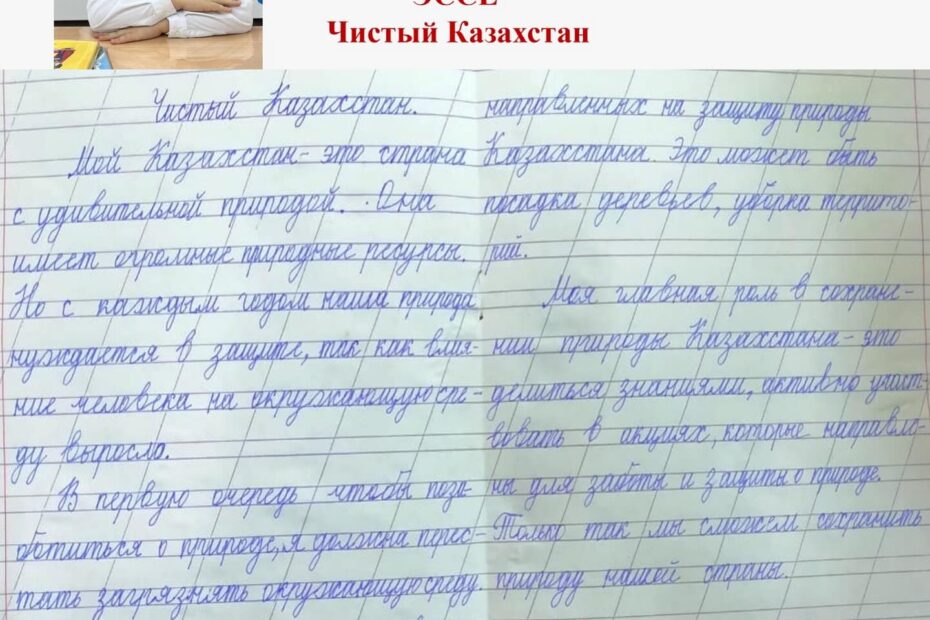 ЭССЕ
Чистый Казахстан
Чистый Казахстан.
Мой Казахстан - это страна
с удивительной природой. Она
имеет огромные природные ресурсы.
Но с каждым годом наша природа
нуждается в защите, так как влия-
ние человека на окружающую сре-
ду выросло.
В первую очередь чтобы поза-
ботиться о природе, я должна перес-
тать загрязнять окружающую среду.
направленных на защиту природы
Казахстана. Это может быть
посадка деревьев, уборка террито-
рий.
Моя главная роль в сохране-
нии природы Казахстана - это
делиться знаниями, активно участ-
вовать в акциях, которые направле-
ны для заботы и защиты о природе.
Только так мы сможем сохранить
природу нашей страны.